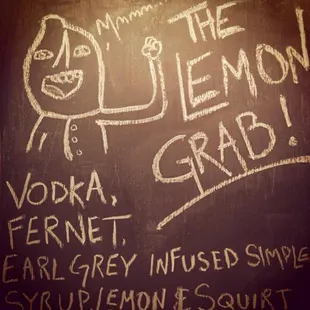 Mmmm...
THE
LEMON
GRAB!
VODKA,
FERNET,
EARL GREY INFUSED SIMPLE
SYRUP, LEMON & SQUIRT